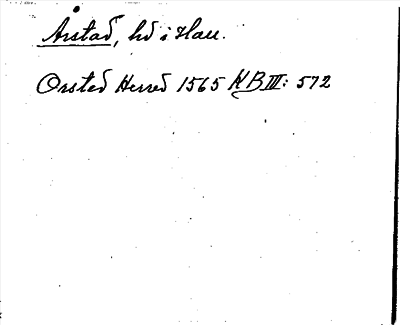 Årstad, hd i Hall.
Orsted Herred 1565 KB III: 572